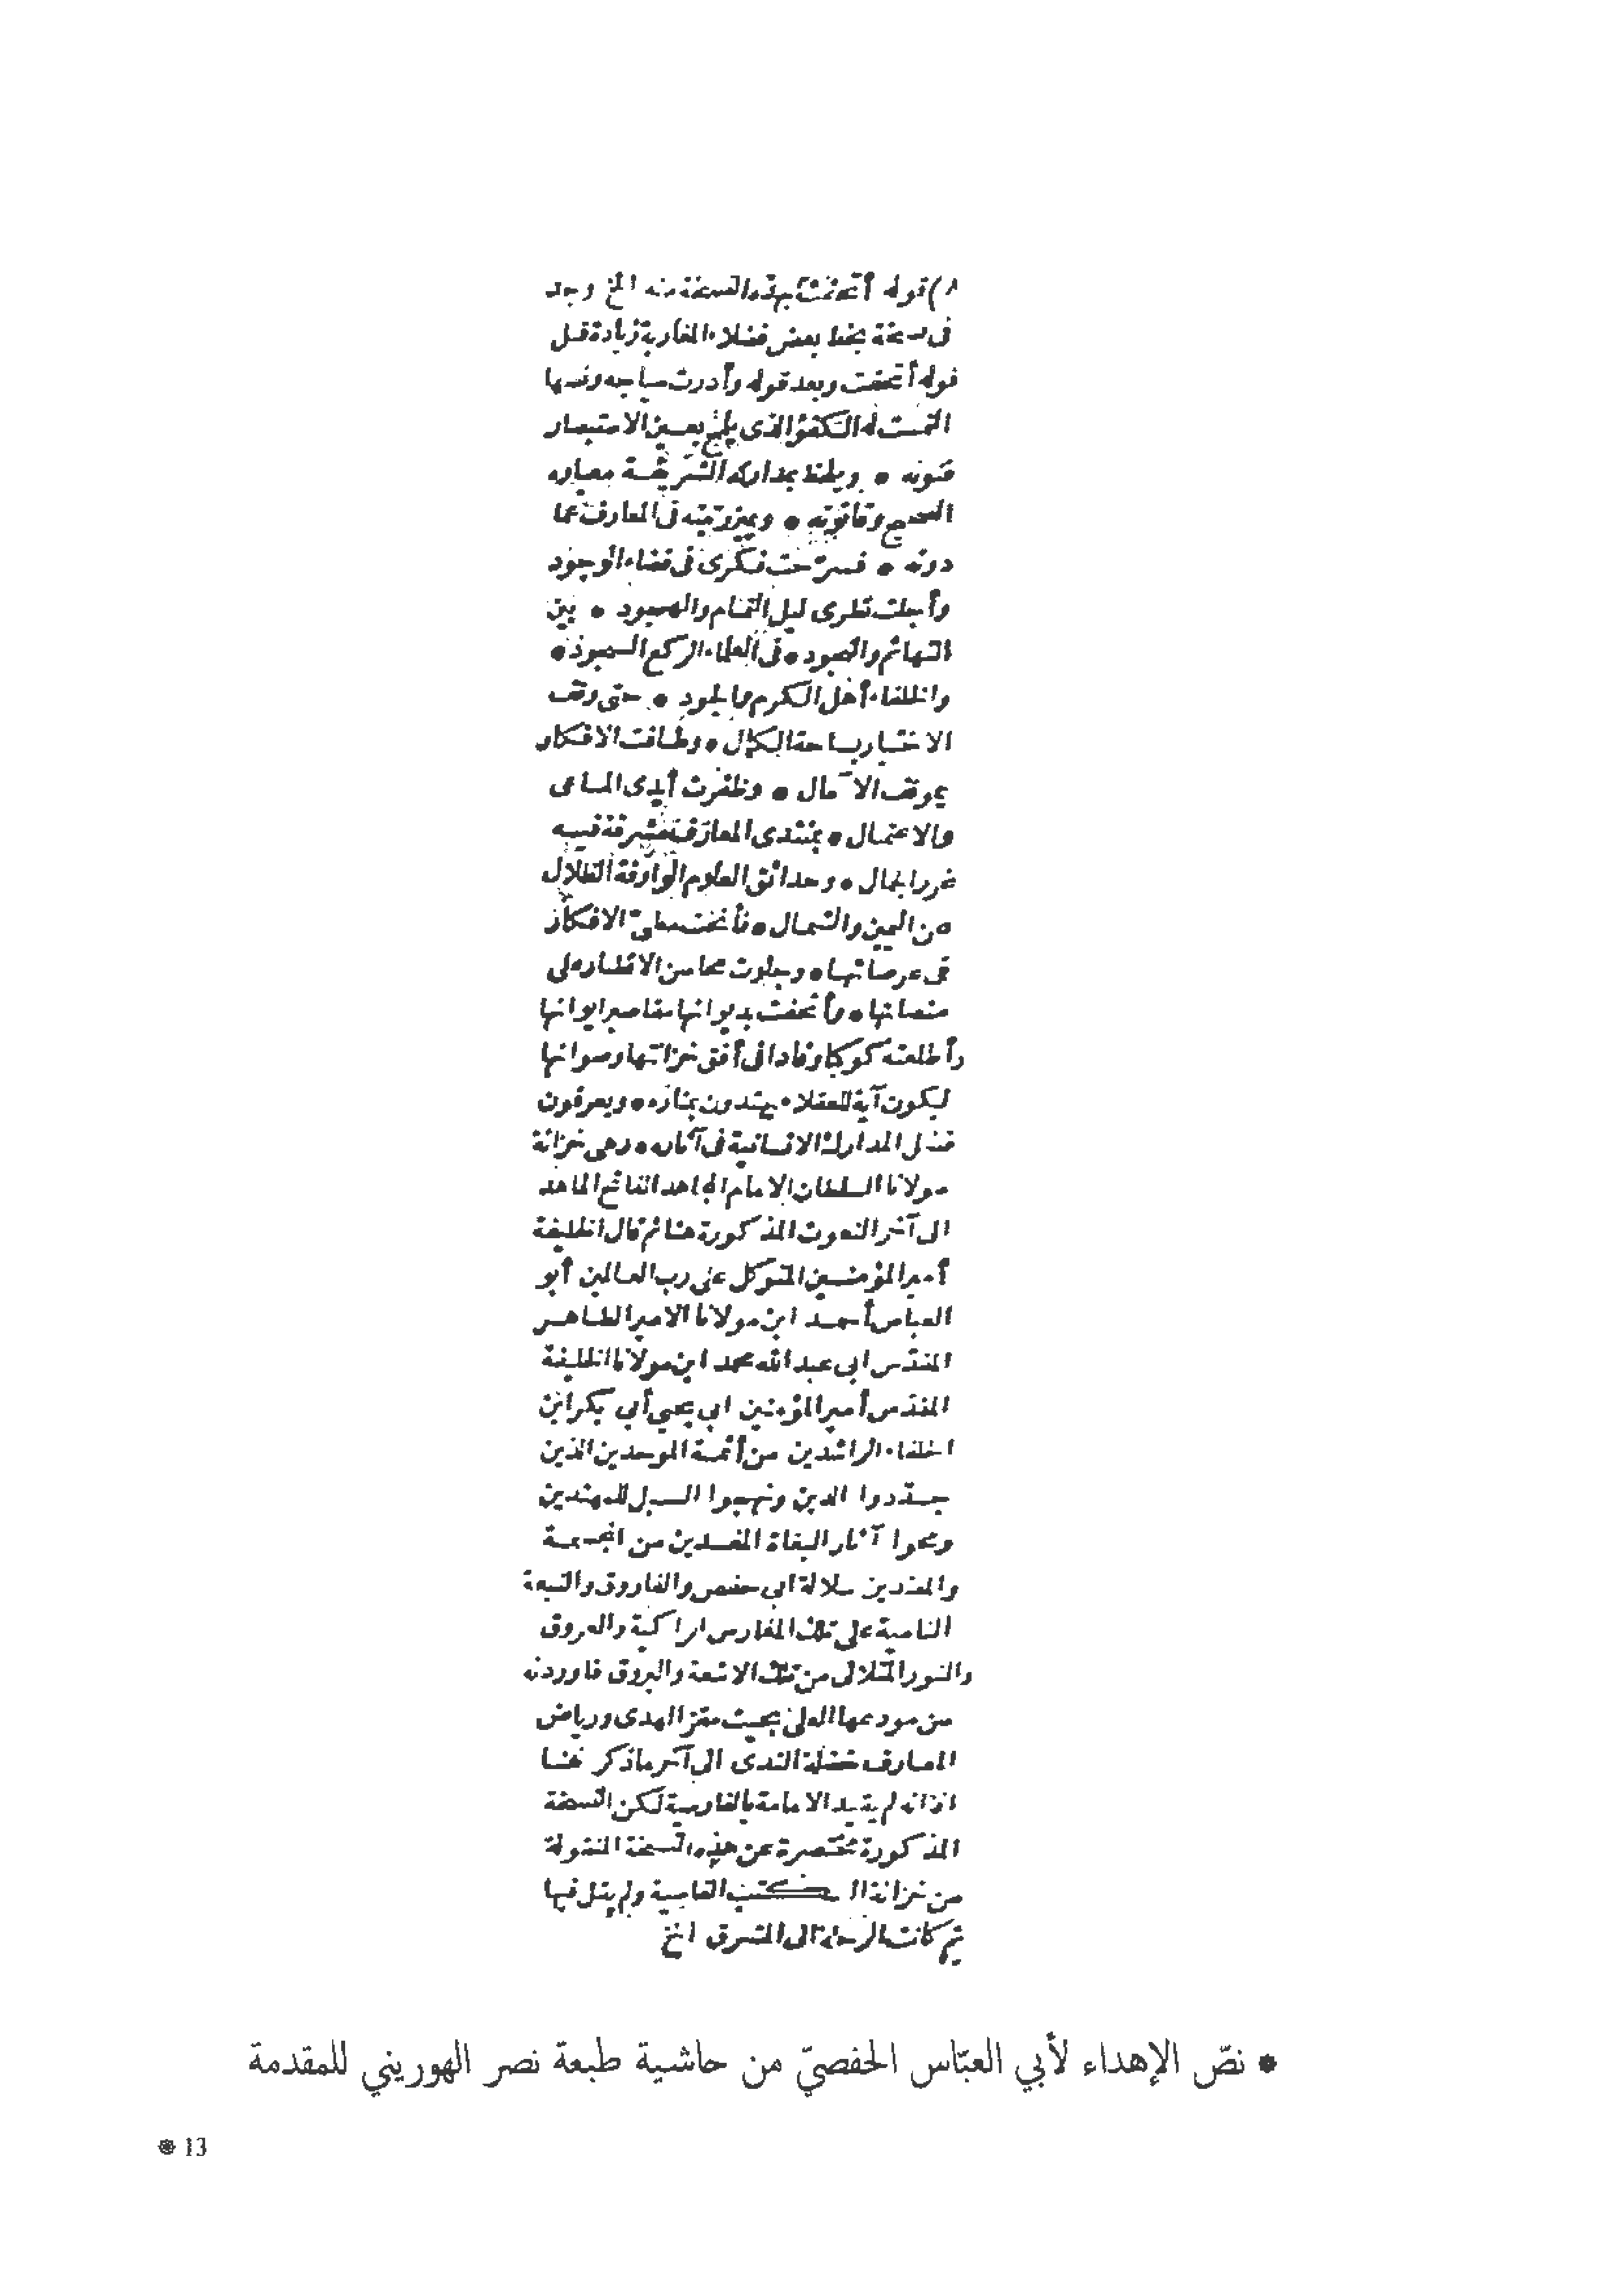 ٨) قوله أتحفت بهذه النسخة منه الخ وجد
فى نسخة بخط بعض فضلاء المغاربة زيادة قبل
قوله أتحفت وبعد قوله وأدرت سياجه ونصها
التمست له الكفؤ الذى يلمح بعين الاستبصار
فنونه • ويلحظ بمداركه الشريفة معياره
الصحيح وقانونه • ويميز رتبته فى المعارف عما
دونه • فسرّحت فكرى فى فضاء الوجود
وأجلت نظرى ليل التمام والهجود • بين
التهائم والنجود • فى العلماء الركع السجود •
والخلفاء أهل الكرم والجود • حتى وقف
الاختيار بساحة الكمال • وطافت الافكار
بموقف الآمال • وظفرت أيدى المساعى
والاعتمال • بمنتدى المعارف مشرقة فيه
غرر الجمال • وحدائق العلوم الوارفة الظلال
عن اليمين والشمال • فأنخت مطىّ الافكار
فى عرصاتها • وجلوت محاسن الانظار على
منصاتها • وأتحفت بديوانها مقاصير ايوانها
وأطلعته كوكبا وقادا فى أفق خزانتها وصوانها
ليكون آية للعقلاء يهتدون بمناره • ويعرفون
فضل المدارك الانسانية فى آثاره • وهى خزانة
مولانا السلطان الامام المجاهد الفاتح الماهد
الى آخر النعوت المذكورة هنا ثم قال الخليفة
أمير المؤمنين المتوكل على رب العالمين أبو
العباس أحمد ابن مولانا الامير الطاهر
المقدّس ابى عبد الله محمد ابن مولانا الخليفة
المقدّس أمير المؤمنين ابى يحيى أبى بكر ابن
الخلفاء الراشدين من أئمة الموحدين الذين
جدّدوا الدين ونهجوا السبل للمهتدين
ومحوا آثار البغاة المفسدين من المجسمة
والمعتدين سلالة ابى حفص والفاروق والنبعة
النامية على تلك المغارس الزاكية والعروق
والنور المتلالئ من تلك الاشعة والبروق فاوردته
من مودعها العلىّ بحيث مقرّ الهدى ورياض
المعارف خضلة الندى الى آخر ما ذكر هنا
الا انه لم يقيد الامامة بالفارسية لكن النسخة
المذكورة مختصرة عن هذه النسخة المنقولة
من خزانة الكتب الفاسية ولم يقل فيها
ثم كانت الرحلة الى المشرق الخ
* نصّ الإهداء لأبي العبّاس الحفصيّ من حاشية طبعة نصر الهوريني للمقدمة
13